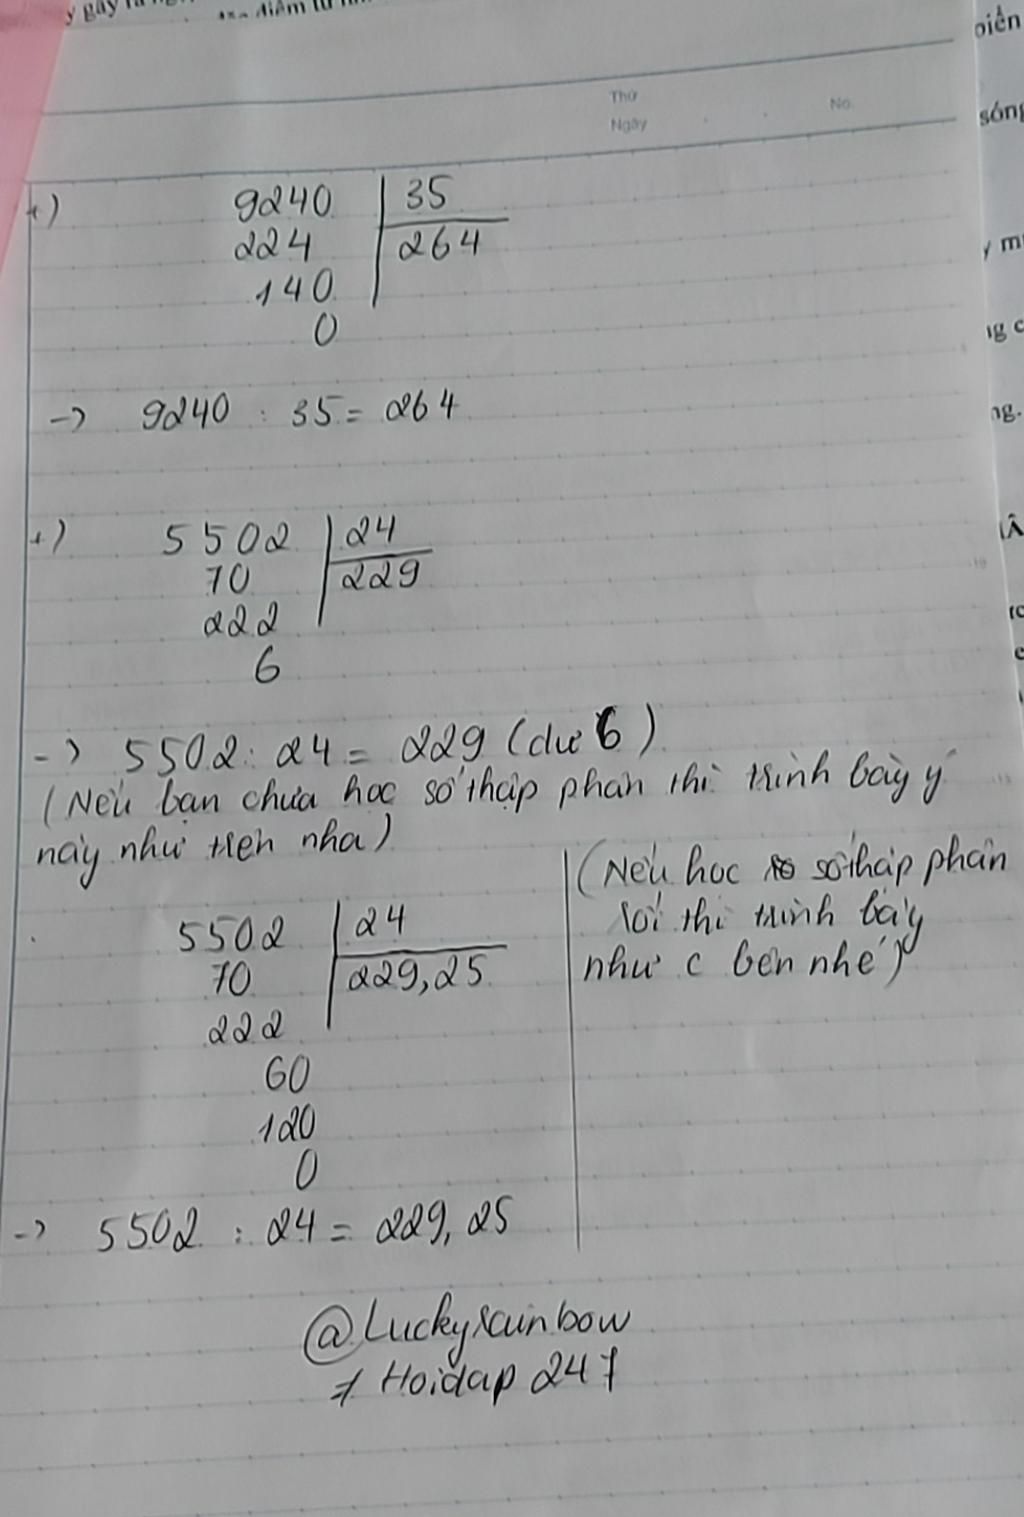 điểm
biển
sóng
Thứ
Ngày
No.
+) 9240 35
224 264
140
0
-> 9240 : 35 = 264
+) 5502 24
70 229
222
6
-> 5502 : 24 = 229 (dư 6)
(Nếu bạn chưa học số thập phân thì trình bày ý
này như trên nha)
5502 24
70 229,25
222
60
120
0
(Nếu học số thập phân
rồi thì trình bày
như c bên nhé)
-> 5502 : 24 = 229,25
@Luckyrainbow
Hoidap 247